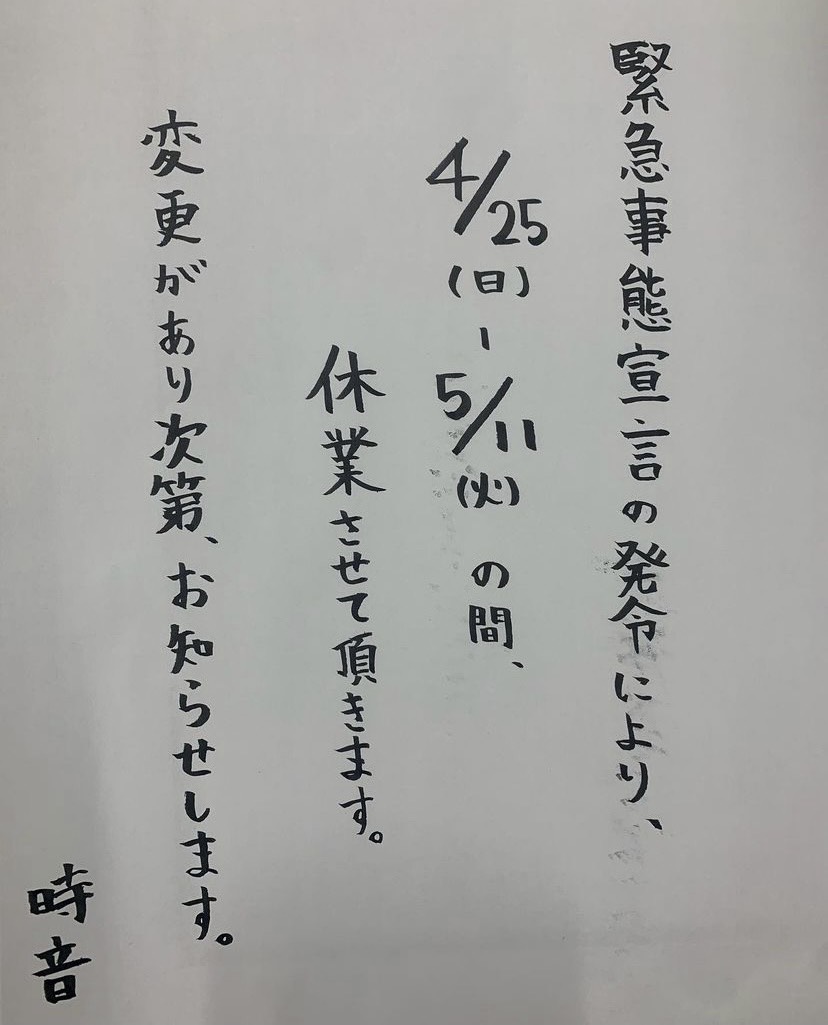 緊急事態宣言の発令により、
4/25(日)-5/11(火)の間、
休業させて頂きます。
変更があり次第、お知らせします。
時音